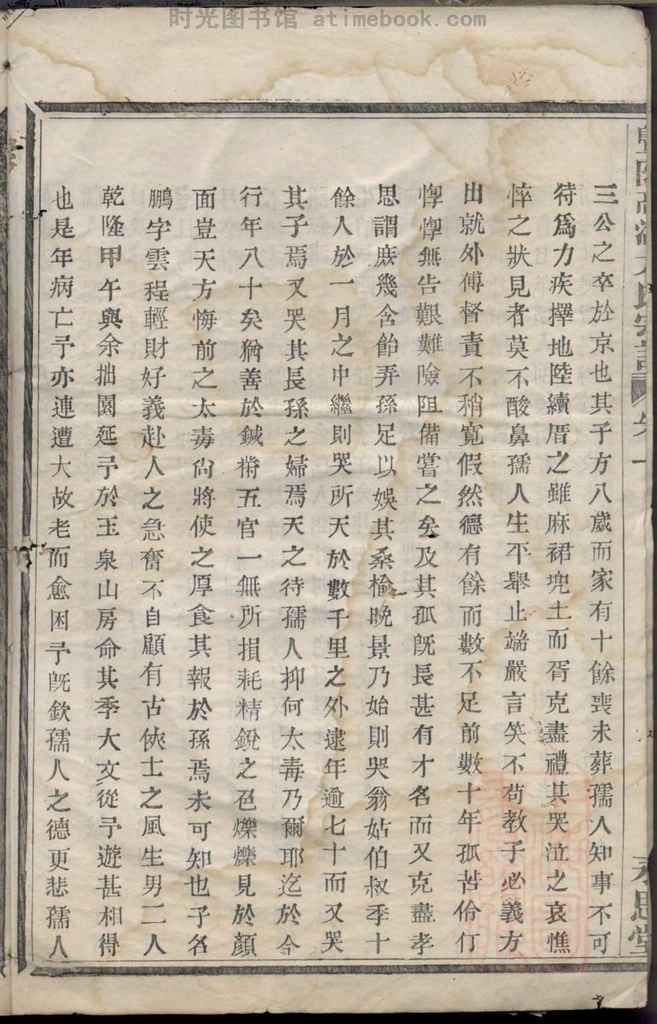 时光图书馆 - atimebook.com
三公之卒於京也其子方八歲而家有十餘喪未葬孺人知事不可
待爲力疾擇地陸續厝之雖麻裙兜土而胥克盡禮其哭泣之哀憔
悴之狀見者莫不酸鼻孺人生平舉止端嚴言笑不苟教子必義方
出就外傅督責不稍寬假然德有餘而數不足前數十年孤苦伶仃
惸惸無告艱難險阻備嘗之矣及其孤旣長甚有才名而又克盡孝
思謂庶幾含飴弄孫足以娛其桑榆晚景乃始則哭翁姑伯叔季十
餘人於一月之中繼則哭所天於數千里之外逮年逾七十而又哭
其子焉又哭其長孫之婦焉天之待孺人抑何太毒乃爾耶迄於今
行年八十矣猶善於鍼黹五官一無所損耗精銳之色爍爍見於顏
面豈天方悔前之太毒尙將使之厚食其報於孫焉未可知也子名
鵬字雲程輕財好義赴人之急奮不自顧有古俠士之風生男二人
乾隆甲午與余拙園延予於玉泉山房命其季大文從予遊甚相得
也是年病亡予亦連遭大故老而愈困予旣欽孺人之德更悲孺人
氏宗譜
卷一
永思堂